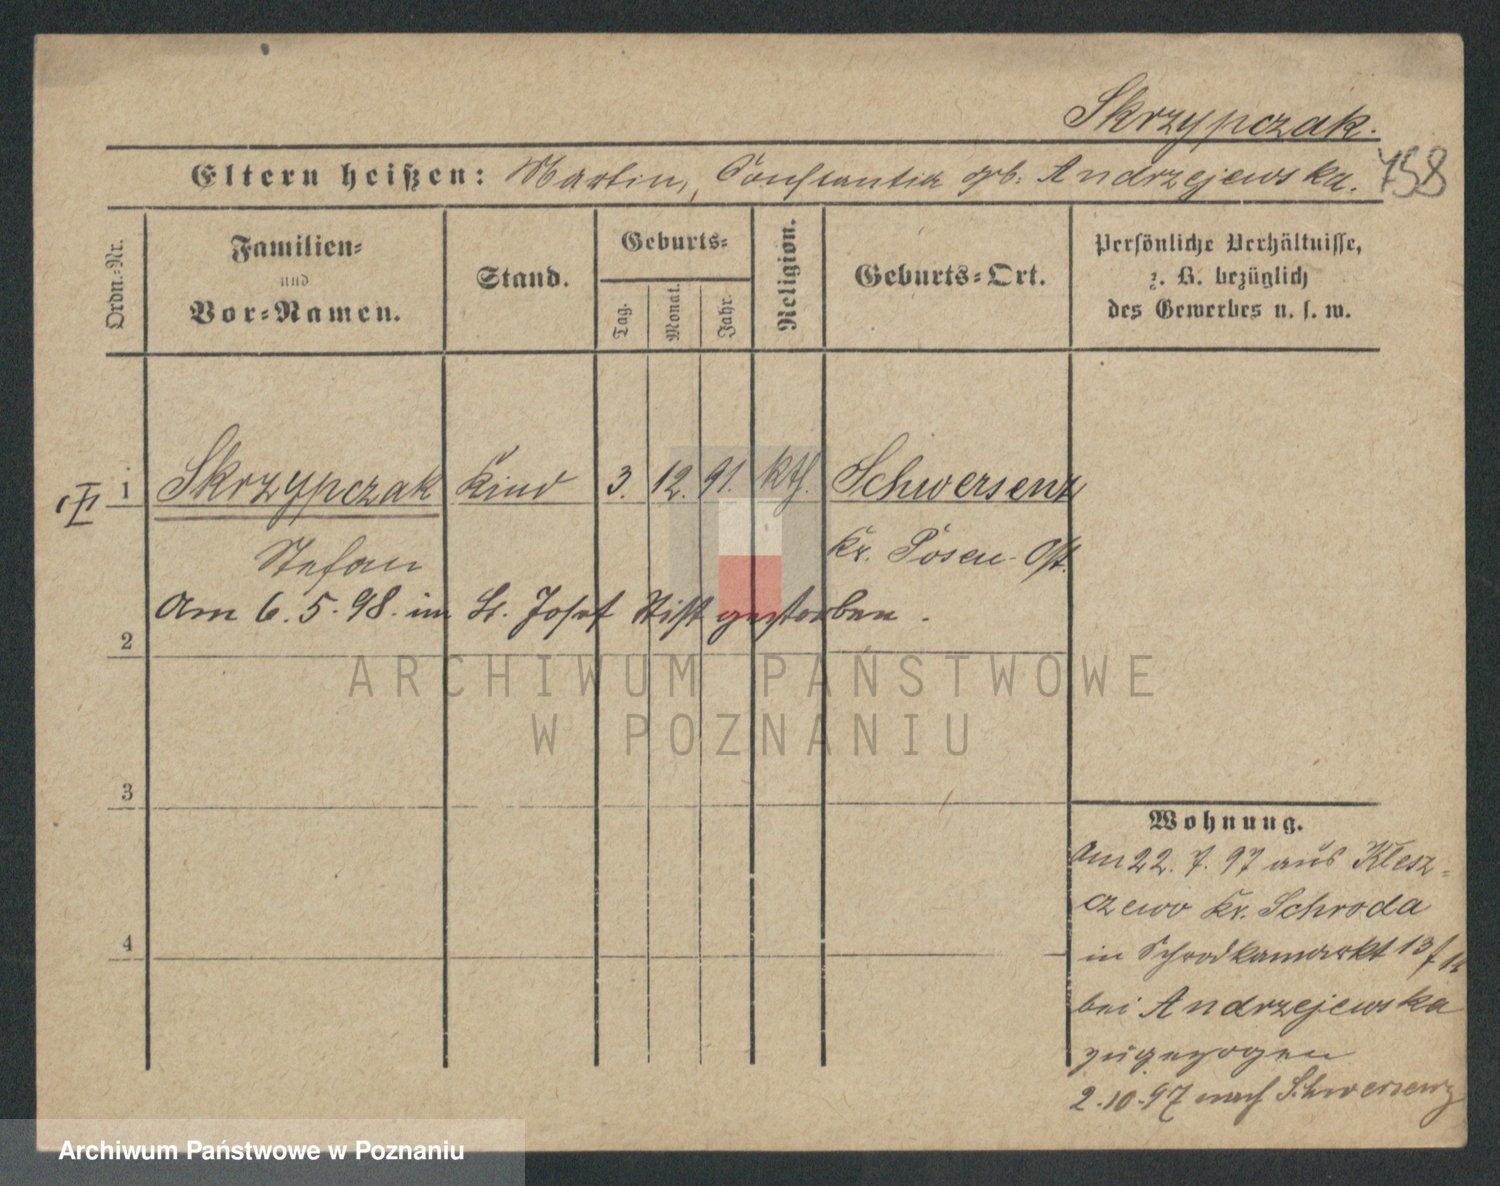 Skrzypczak.
Eltern heißen: Martin, Constantia geb. Andrzejewska. 758
Ordn.=Nr.
Familien=
und
Vor=Namen.
Stand.
Geburts=
Tag.
Monat.
Jahr.
Religion.
Geburts=Ort.
Persönliche Verhältnisse,
z. B. bezüglich
des Gewerbes u. s. w.
1 Skrzypczak Kind 3. 12. 91. kth. Schwersenz
Stefan Kr. Posen-Ost.
Am 6.5.98. im St. Josef Stift gestorben.
2
3
4
Wohnung.
Am 22.7.97 aus Klesz=
czewo Kr. Schroda
in Schrodkamarkt 13/14
bei Andrzejewska
zugezogen
2.10.97 nach Schwersenz
ARCHIWUM PAŃSTWOWE
W POZNANIU
Archiwum Państwowe w Poznaniu